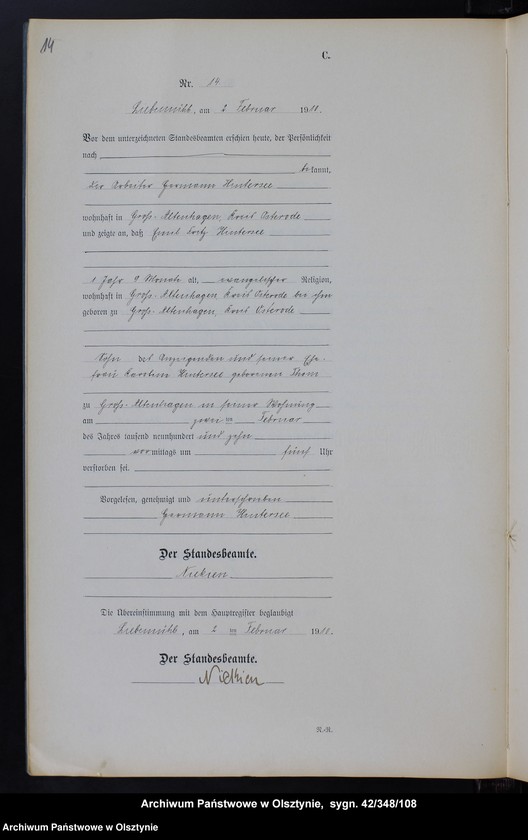 14
C.
Nr. 14
Liebemühl, am 2 Februar 1910.
Vor dem unterzeichneten Standesbeamten erschien heute, der Persönlichkeit
nach
bekannt,
der Arbeiter Hermann Hintersee
wohnhaft in Groß-Altenhagen, Kreis Osterode
und zeigte an, daß Emil Hintersee
1 Jahr 9 Monate alt, evangelischer Religion,
wohnhaft in Groß-Altenhagen, Kreis Osterode bei ihm
geboren zu Groß-Altenhagen, Kreis Osterode
Sohn des Anzeigenden und seiner Ehe-
frau Karoline Hintersee geborenen
zu Groß-Altenhagen in seiner Wohnung
am zwei ten Februar
des Jahres tausend neunhundert und zehn
vormittags um fünf Uhr
verstorben sei.
Vorgelesen, genehmigt und unterschrieben
Hermann Hintersee
Der Standesbeamte.
Die Übereinstimmung mit dem Hauptregister beglaubigt
Liebemühl, am 2 ten Februar 1910.
Der Standesbeamte.
Archiwum Państwowe w Olsztynie, sygn. 42/348/108
Archiwum Państwowe w Olsztynie